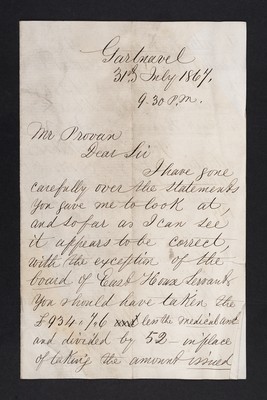 Gartnavel
31st July 1867.
9.30 P.M.
Mr Provan
Dear Sir
I have gone
carefully over the statements
you gave me to look at,
and so far as I can see
it appears to be correct,
with the exception of the
board of East House Servants
You should have taken the
£934.7.6 less the medical amt
and divided by 52 – in place
of taking the amount issued